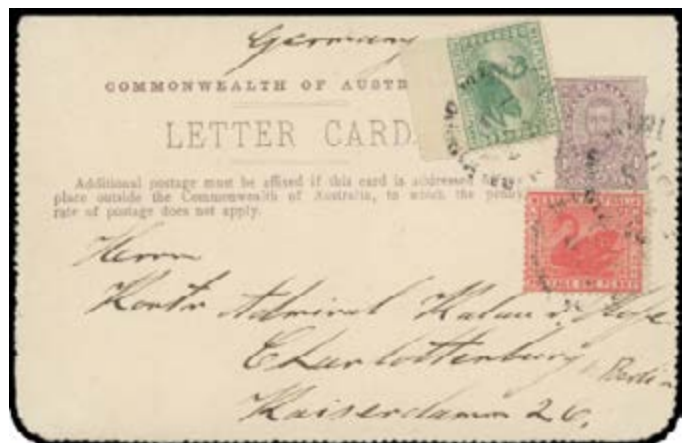 Germany
COMMONWEALTH OF AUSTR
LETTER CARD
Additional postage must be affixed if this card is addressed
place outside the Commonwealth of Australia, to which the penny
rate of postage does not apply.
Herrn
Kontr Admiral
Charlottenburg, Berlin
Kaiserdamm 26.
POSTAGE ONE PENNY